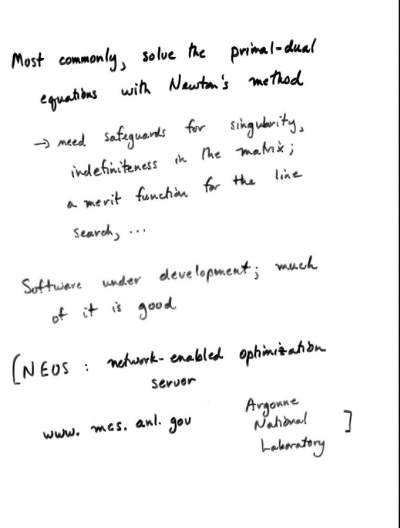 Most commonly, solve the primal-dual
equations with Newton's method
→ need safeguards for singularity,
indefiniteness in the matrix;
a merit function for the line
search, ...
Software under development; much
of it is good
[NEOS : network-enabled optimization
server
www. mcs. anl. gov Argonne
National
Laboratory ]